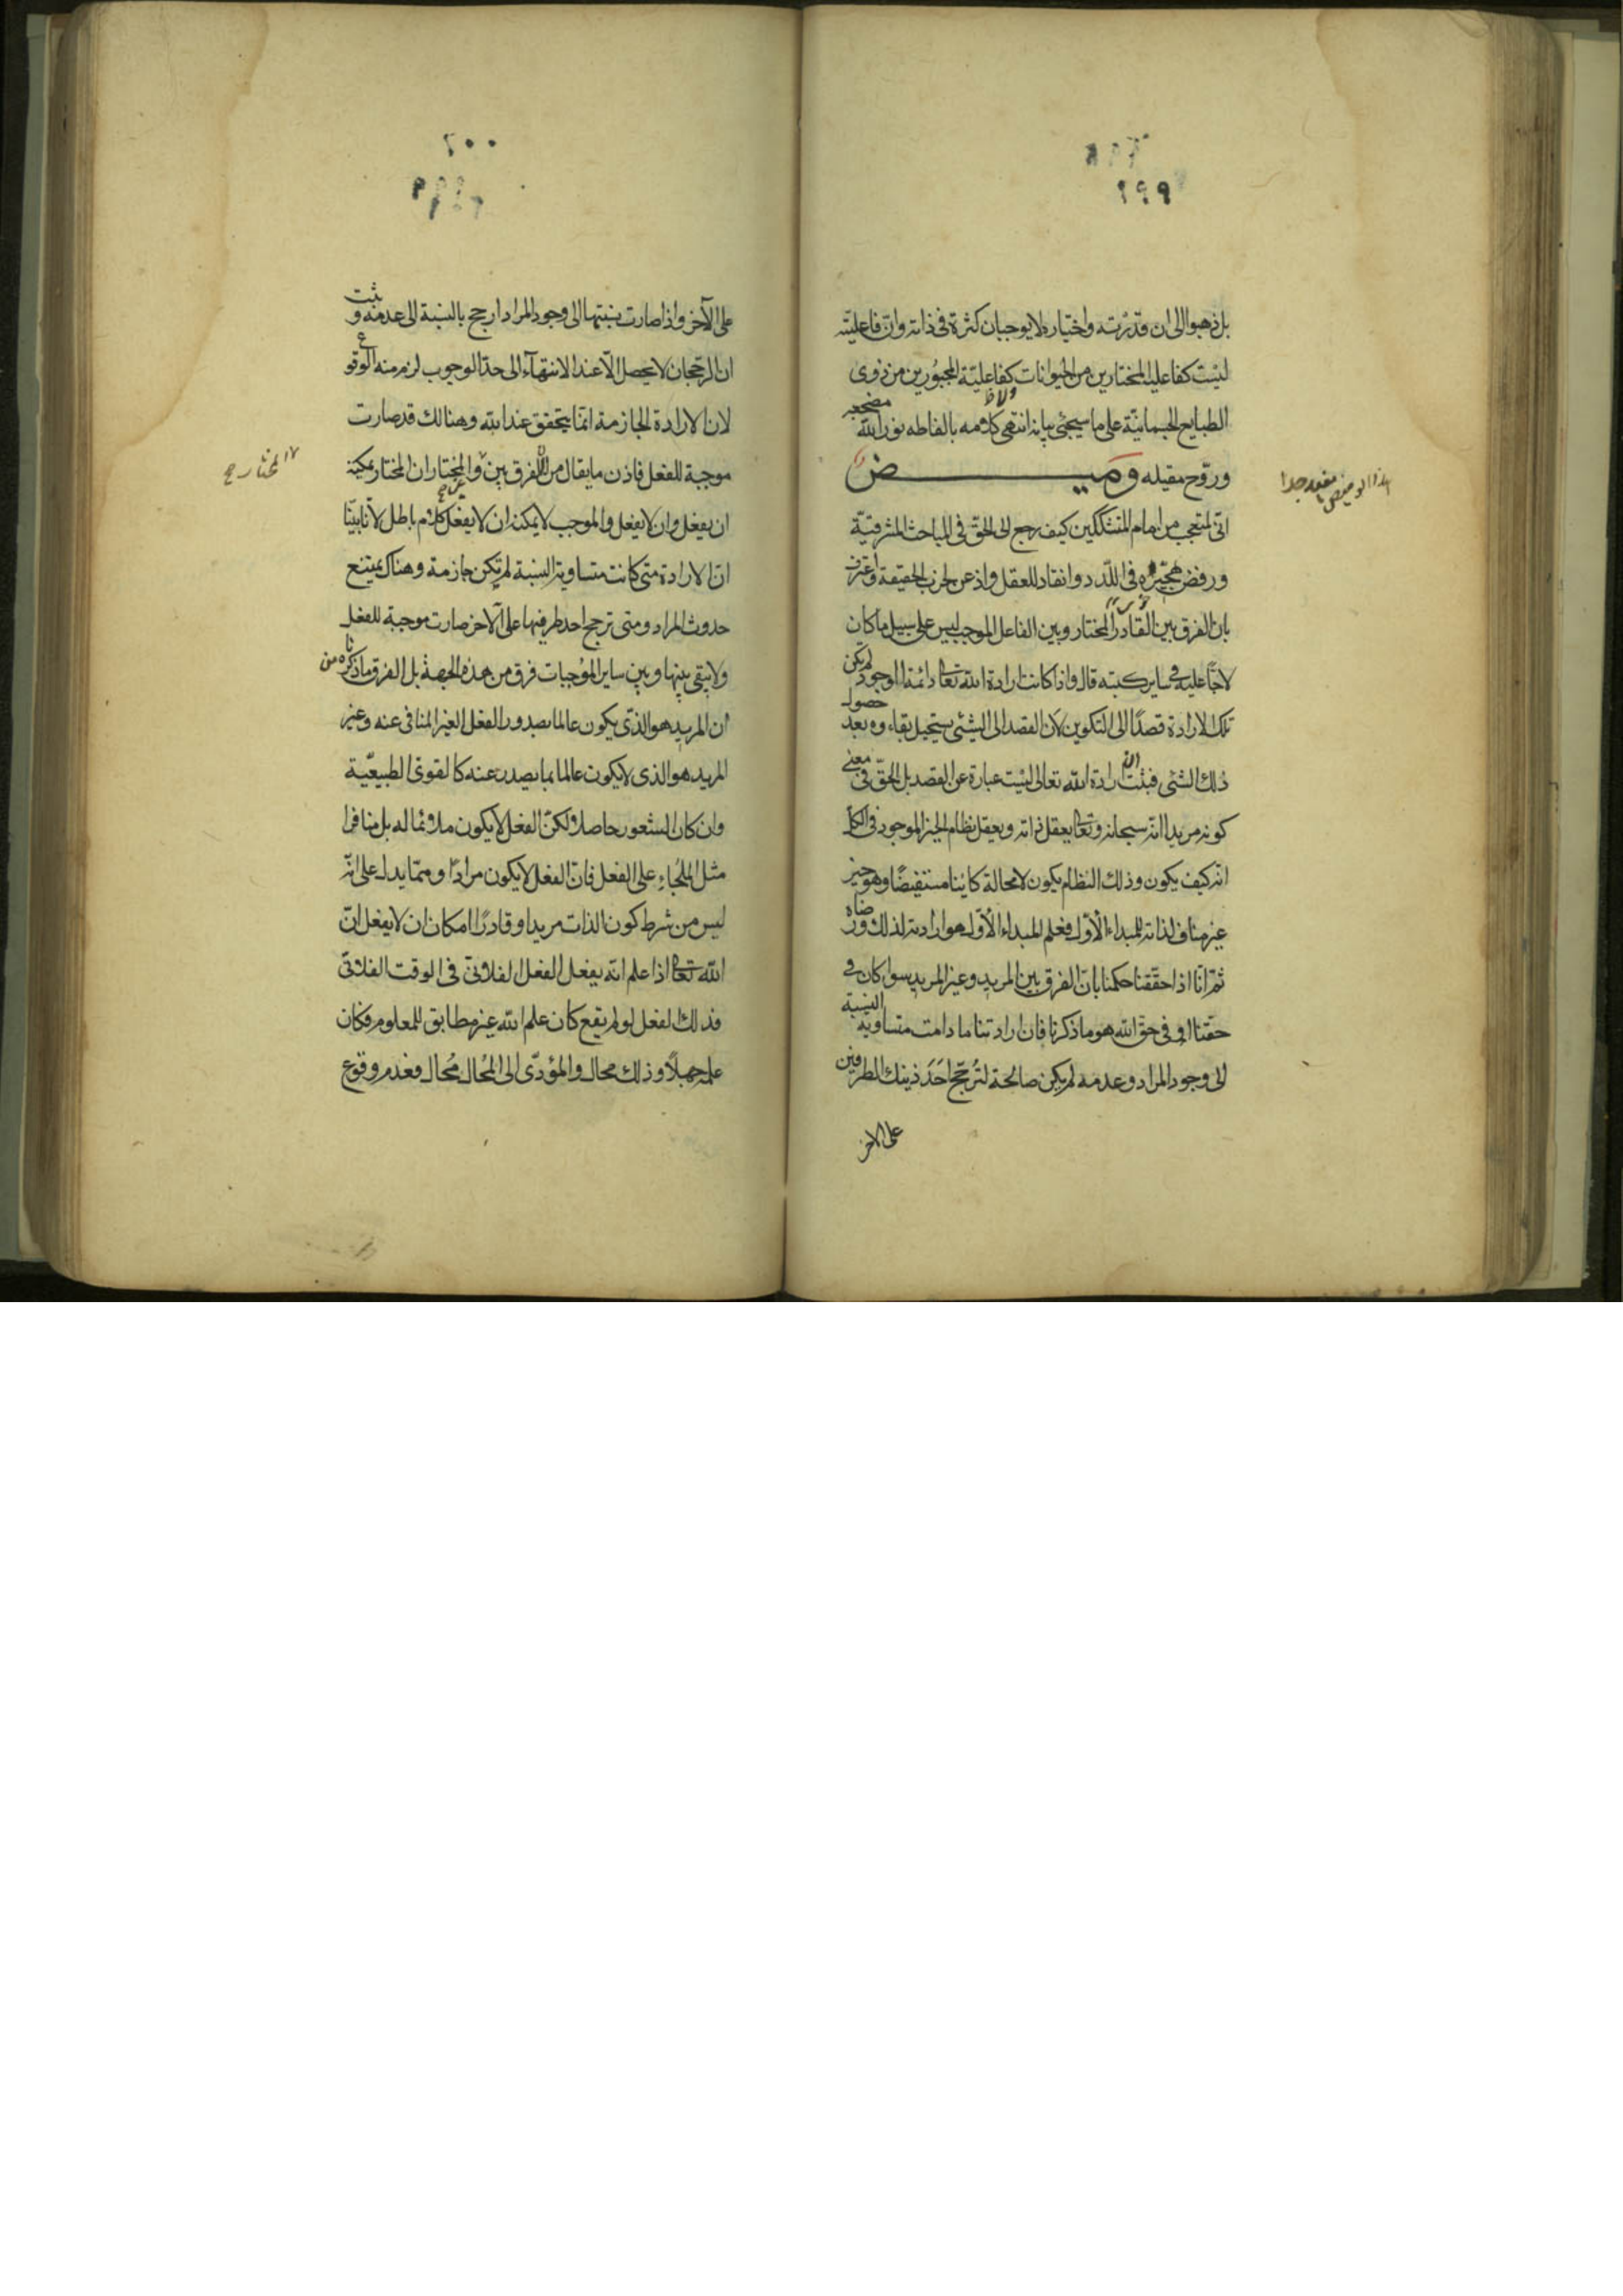 ٢٩٩
بل ذهبوا الى ان قدرته واختياره لا يوجبان كثرة فى ذاته وان فاعليته
ليست كفاعلية المختارين من الحيوانات كفاعلية المجبورين من ذوى
الطبايع الجسمانية على ما سيجئ بيانه انتهى كلامه بالفاظه نور الله مضجعه
وروّح مقيله وميض
هذا الوميض مفيد جدا
انى لمتعجب من امام المتشككين كيف رجع الى الحق فى المباحث المشرقية
ورفض هجيره فى اللدد وانقاد للعقل واذعن لحزب الحقيقة واعترف
بان الفرق بين القادر المختار وبين الفاعل الموجب ليس على سبيل ما كان
لاجّا عليه فى ساير كتبه قال واذا كانت ارادة الله تعا دائمة الوجود لم تكن
تلك الارادة قصدًا الى التكوين لان القصد الى الشئ يستحيل بقاءوه بعد حصول
ذلك الشئ فثبت ان ارادة الله تعالى ليست عبارة عن القصد بل الحقّ فى معنى
كونه مريدا انه سبحانه وتعا يعقل ذاته ويعقل نظام الخير الموجود فى الكل
انه كيف يكون وذلك النظام يكون لا محالة كاينا مستفيضًا وهو خير
غير مناف لذاته للمبداء الأوّل فعلم المبداء الأوّل هو ارادته لذلك ورضاه
ثم انّا اذا حققنا حكمنا بان الفرق بين المريد وغير المريد سوا كان فى
حقنا او فى حق الله هو ما ذكرنا فان ارادتنا ما دامت متساوية النسبة
الى وجود المراد وعدمه لم يكن صالحة لترجّح احَدَ ذينك الطرفين
على الاخر
٢٠٠
على الآخر واذا صارت نسبتها الى وجود المراد ارجح بالنسبة الى عدمه وثبت
ان الرجحان لا يحصل الّا عند الانتهآء الى حدّ الوجوب لزم منه الوقوع
لان الارادة الجازمة انما يتحقق عند الله وهنالك قد صارت
موجبة للفعل فاذن ما يقال من الفرق بين والمختار ان المختار يمكنه
المختار ح
ان يفعل وان لا يفعل والموجب لا يمكنه ان لا يفعل كلام باطل لانا بينّا
انّ الارادة متى كانت متساوية النسبة لم تكن جازمة وهناك يمتنع
حدوث المراد ومتى ترجح احد طرفيها على الآخر صارت موجبة للفعل
ولا يبقى بينها وبين ساير الموجبات فرق من هذه الجهة بل الفرق ما ذكرناه من
ان المريد هو الذى يكون عالما بصدور الفعل الغير المنافى عنه وغير
المريد هو الذى لا يكون عالما بما يصدر عنه كالقوى الطبيعيّة
وان كان الشعور حاصلا ولكنّ الفعل لا يكون ملائما له بل منافرا
مثل الملجاء على الفعل فانّ الفعل لا يكون مرادًا وممّا يدل على انّه
ليس من شرط كون الذات مريدا وقادرًا امكان ان لا يفعل انّ
الله تعا اذا علم انّه يفعل الفعل الفلانىّ فى الوقت الفلانىّ
فذلك لفعل لو لم يقع كان علم الله غير مطابق للمعلوم فكان
علمه جهلًا وذلك محال والمؤدّى الى المُحال مُحال فعدم وقوع